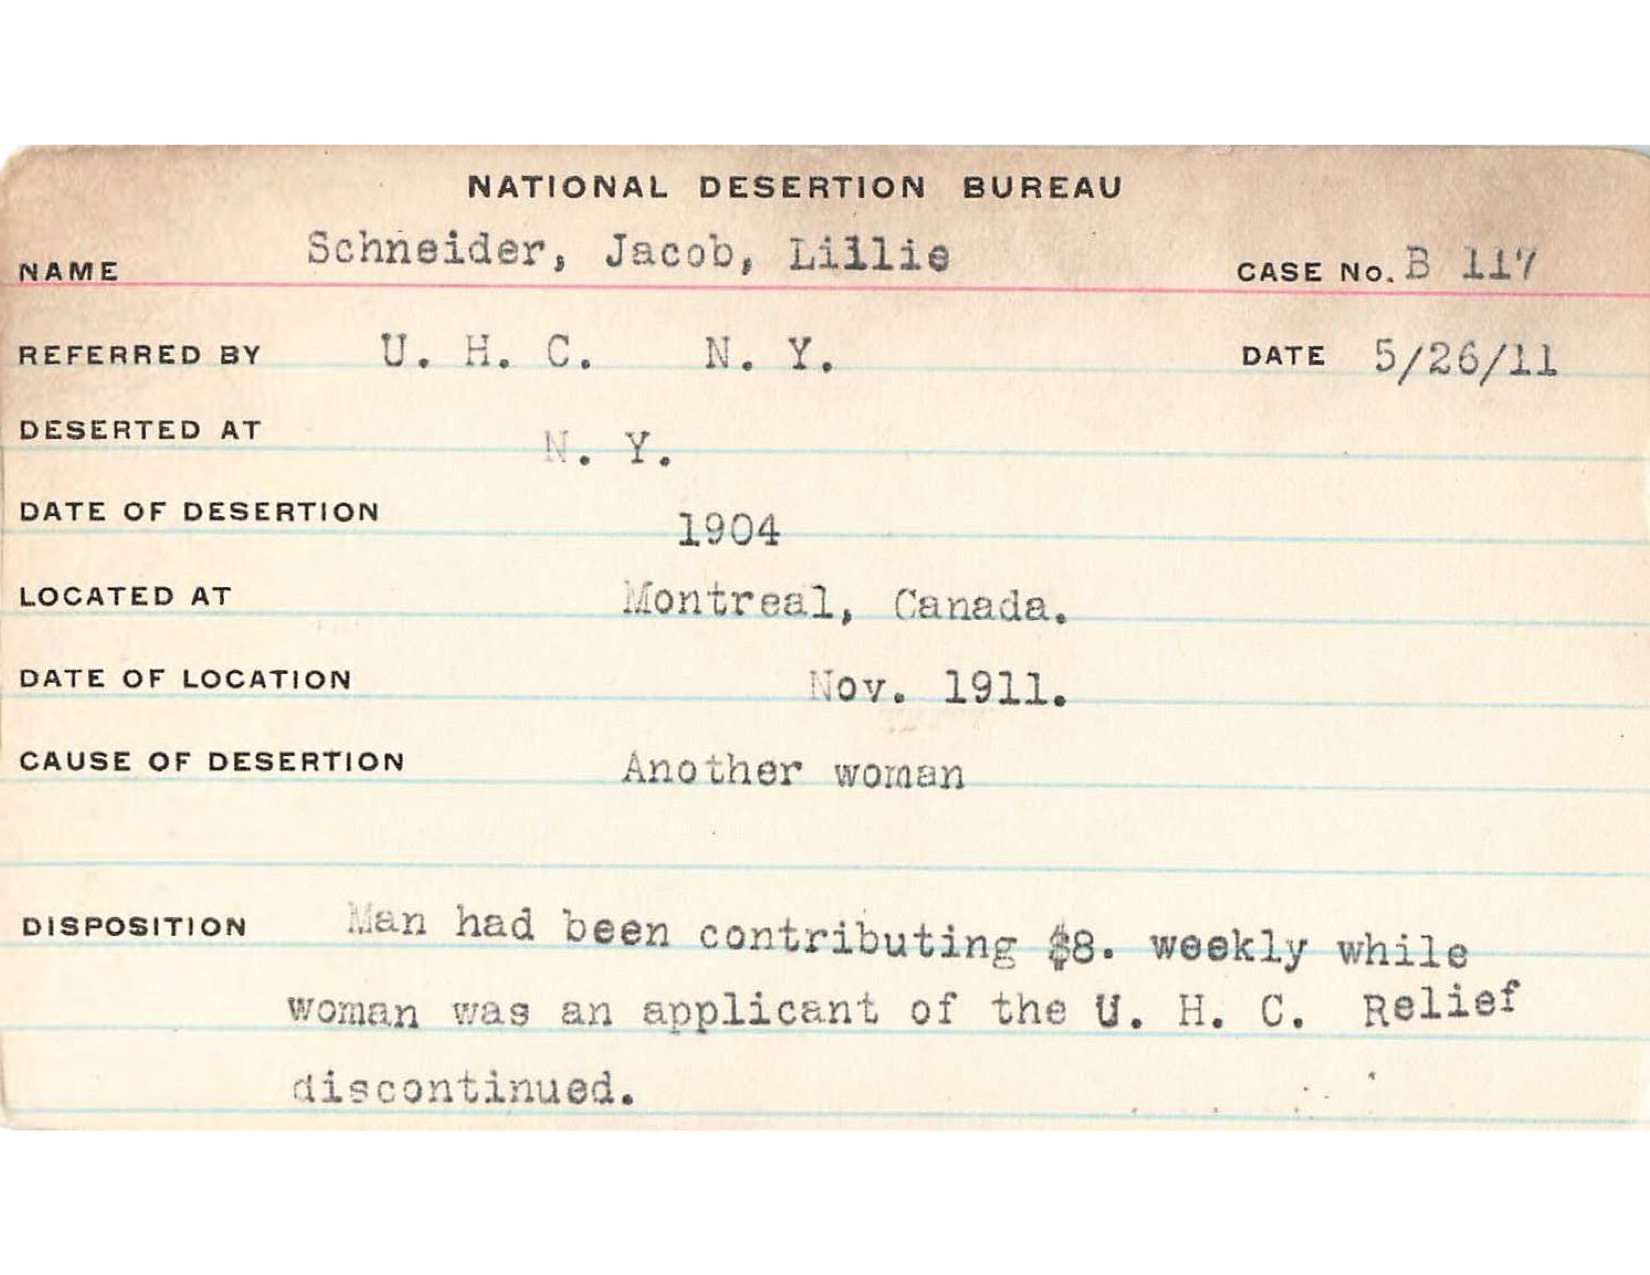 NATIONAL DESERTION BUREAU
NAME Schneider, Jacob, Lillie CASE No. B 117
REFERRED BY U. H. C. N. Y. DATE 5/26/11
DESERTED AT N. Y.
DATE OF DESERTION 1904
LOCATED AT Montreal, Canada.
DATE OF LOCATION Nov. 1911.
CAUSE OF DESERTION Another woman
DISPOSITION Man had been contributing $8. weekly while
woman was an applicant of the U. H. C. Relief
discontinued.